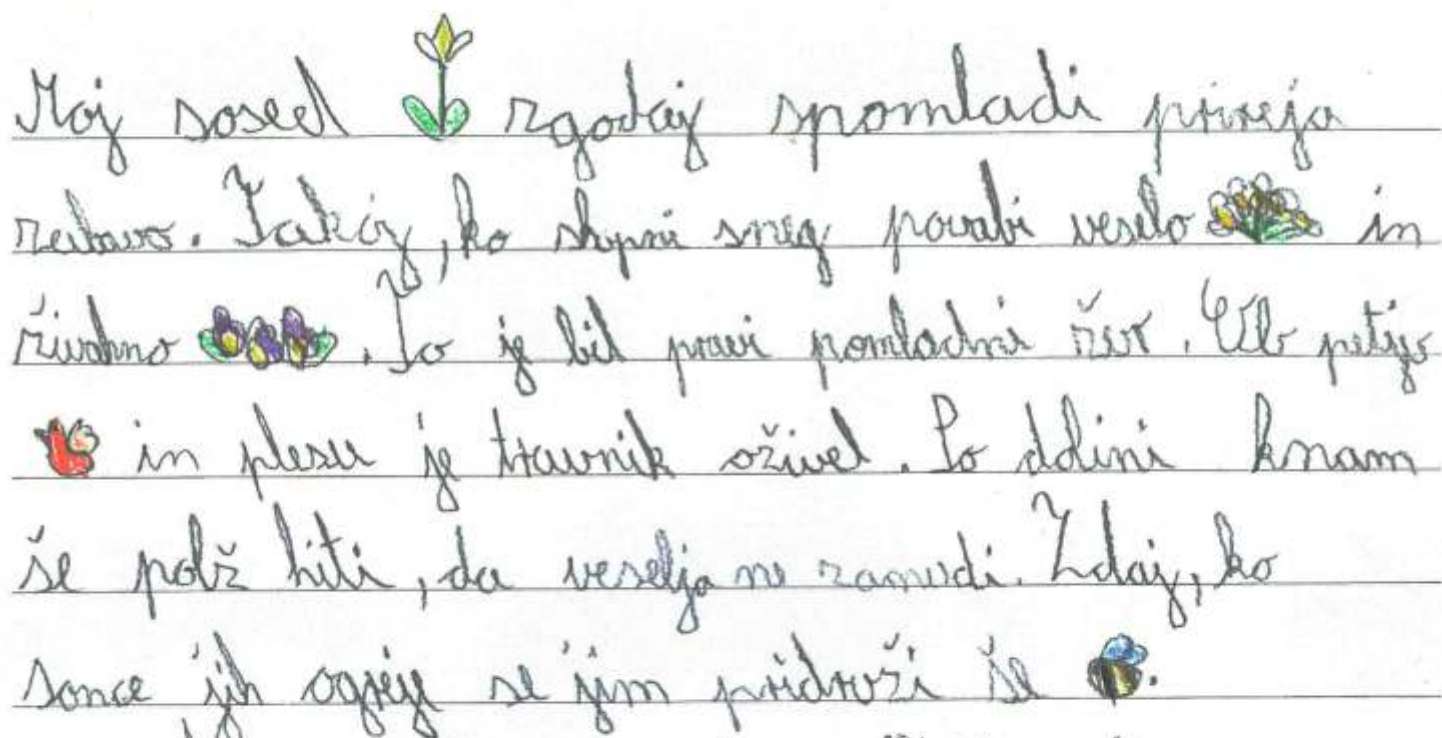 Moj sosed zgodaj spomladi prireja
zabavo. Takoj, ko skopni sneg povabi veselo in
živahno . To je bil pravi pomladni žur. Ob petju
in plesu je travnik oživel. Po dolini k nam
še polž hiti, da veselja ne zamudi. Zdaj, ko
sonce jih ogreje se jim pridruži še .